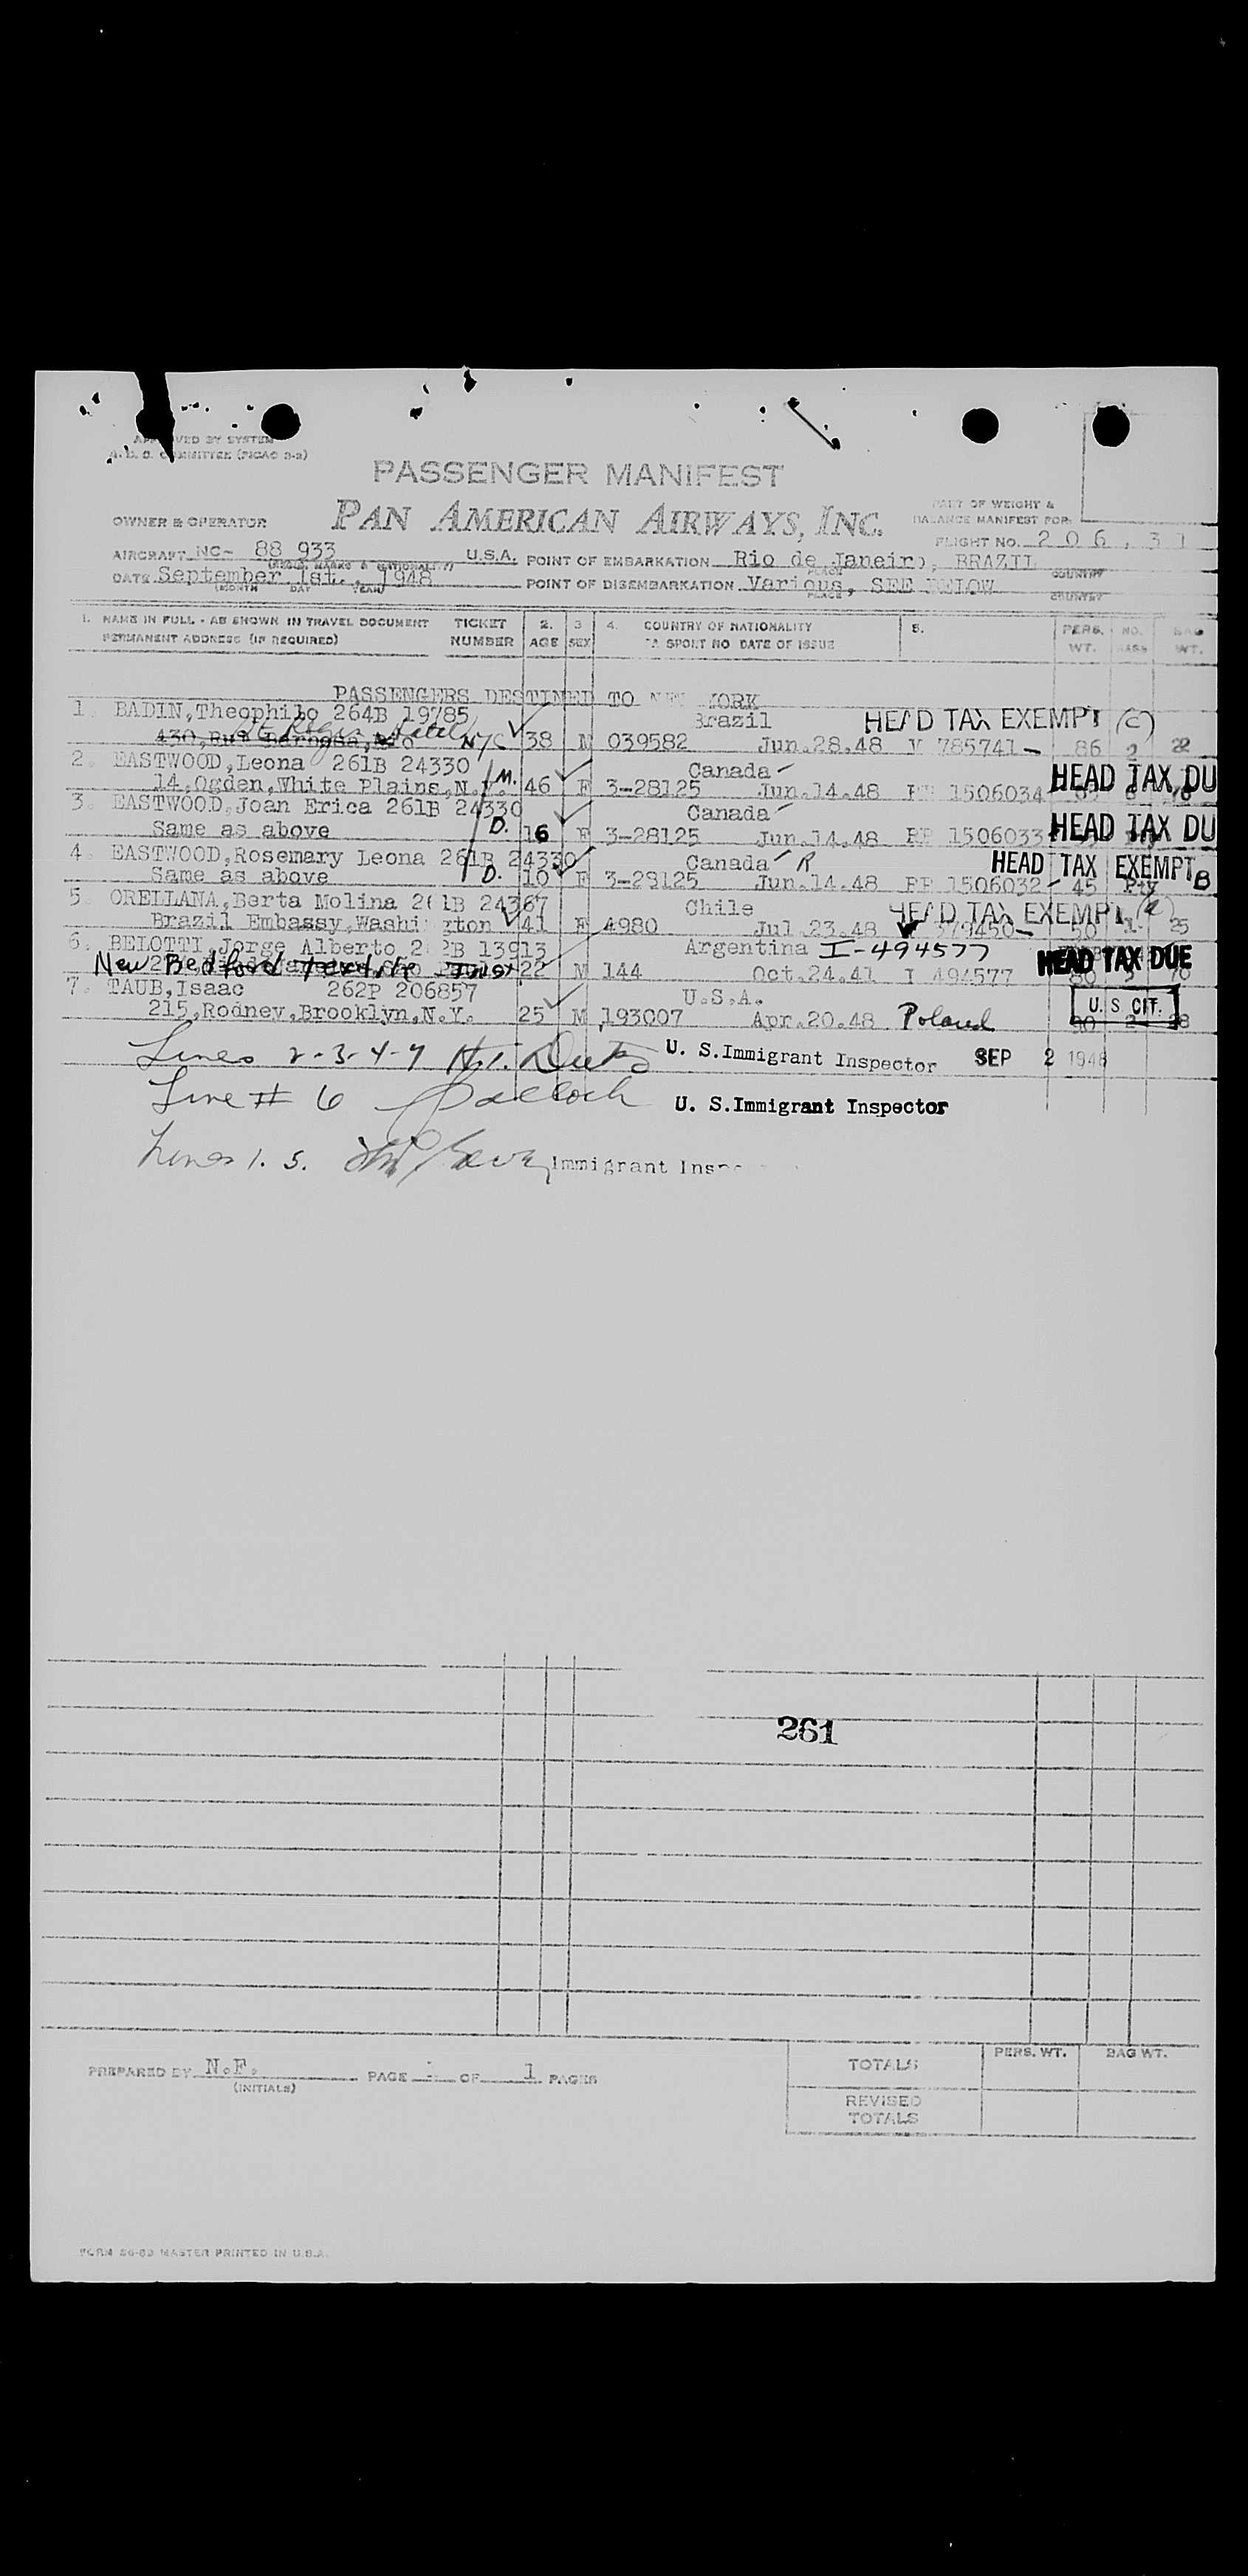 APPROVED BY SYSTEM
COMMITTEE (PICAO 3-2)
PASSENGER MANIFEST
PAN AMERICAN AIRWAYS, INC.
OWNER & OPERATOR
PART OF WEIGHT &
BALANCE MANIFEST FOR:
FLIGHT NO. 206, 31
AIRCRAFT NC- 88 933 U.S.A. POINT OF EMBARKATION Rio de Janeiro, BRAZIL
DATE September 1st., 1948 POINT OF DISEMBARKATION Various, SEE BELOW
(MONTH DAY YEAR) PLACE COUNTRY
1. NAME IN FULL - AS SHOWN IN TRAVEL DOCUMENT TICKET 2. 3 4. COUNTRY OF NATIONALITY 5. PERS. NO. BAG
PERMANENT ADDRESS (IF REQUIRED) NUMBER AGE SEX SPORT NO DATE OF ISSUE WT. WT.
PASSENGERS DESTINED TO NEW YORK
1. BADIN, Theophilo 264B 19785 Brazil HEAD TAX EXEMPT (C)
Hotel NYC
430, Rua 38 M 039582 Jun.28.48 V 785741 - 86 2 22
2. EASTWOOD, Leona 261B 24330 Canada HEAD TAX DU
14, Ogden, White Plains, N.Y. M. 46 F 3-28125 Jun.14.48 1506034
3. EASTWOOD, Joan Erica 261B 24330 Canada HEAD TAX DU
Same as above D. 16 F 3-28125 Jun.14.48 RP 1506033
4. EASTWOOD, Rosemary Leona 261B 24330 Canada R HEAD TAX EXEMPT B
Same as above D. 10 F 3-28125 Jun.14.48 1506032 - 45 Pty
5. ORELLANA, Berta Molina 261B 24367 Chile HEAD TAX EXEMPT
Brazil Embassy, Washington 41 F 4980 Jul.23.48 V 379450 - 50 1 25
6. BELOTTI, Jorge Alberto, 2 2B 13913 Argentina I-494577 HEAD TAX DUE
New Bedford Textile Inst 22 M 144 Oct.24.41 I 494577
7. TAUB, Isaac 262P 206857 U.S.A. U. S. CIT.
215, Rodney, Brooklyn, N.Y. 25 M 193007 Apr.20.48 Poland 90 2 28
Lines 2-3-4-7 U. S. Immigrant Inspector SEP 2 1948
Line # 6 U. S. Immigrant Inspector
Lines 1. 5. Immigrant
261
PREPARED BY N.F. PAGE OF 1 PAGES
(INITIALS)
TOTALS PERS. WT. BAG WT.
REVISED
TOTALS
FORM MASTER PRINTED IN U.S.A.